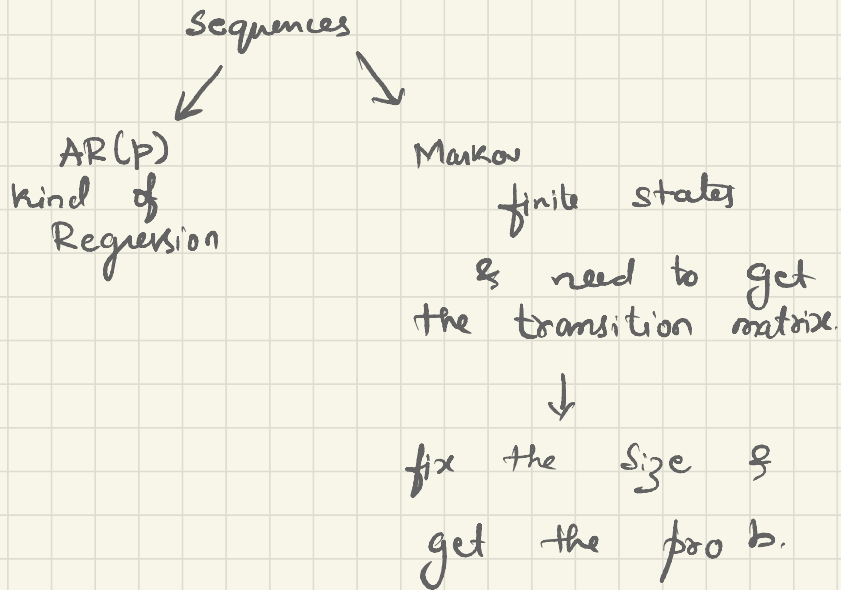 Sequences
AR(p)
kind of
Regression
Markov
finite states
& need to get
the transition matrix.
fix the size &
get the prob.